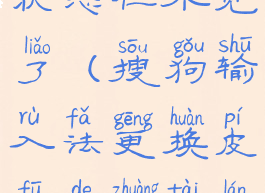 liǎo sōu gǒu shū
了（搜狗输
rù fǎ gēng huàn pí
入法更换皮
fū de zhuàng tài lán